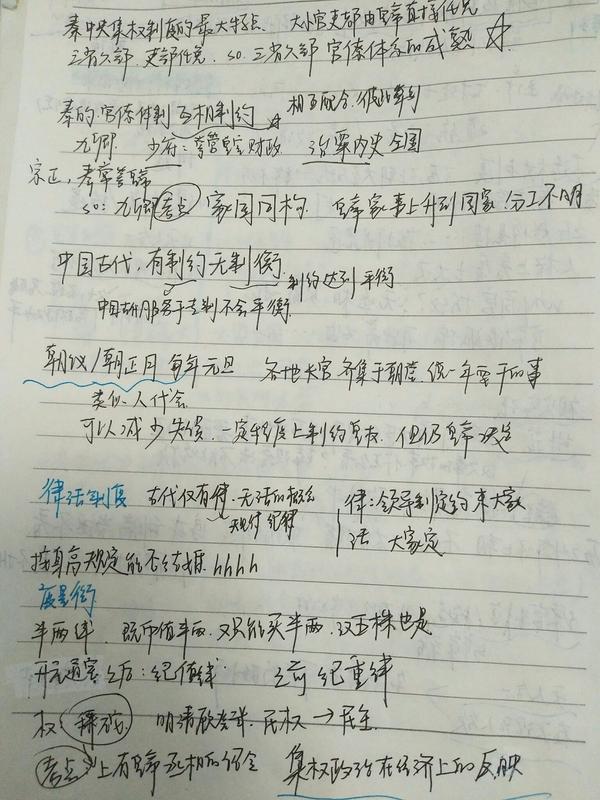 秦中央集权制度的最大特点 大小官吏都由皇帝直接任免
三省六部 吏部任免 so 三省六部 官僚体系的成熟 ☆
秦的官僚体制互相制约 相互配合、彼此牵制
九卿 少府:掌管皇室财政 治粟内史 全国
宗正,
so:九卿 考点 家国同构 皇帝家事上升到国家,分工不明
中国古代,有制约无制衡 制约达到平衡
中国古代服务于专制不会平衡.
朝议/朝正月 每年元旦 各地大官齐集于朝堂,统一年要干的事
类似人代会
可以减少失误,一定程度上制约皇权,但仍皇帝决定
律法制度 古代仅有律,无法的概念 律:领导制定约束大家
规律 纪律 法 大家定
按身高规定能否结婚 hhhh
度量衡
半两钱 既币值半两,又只能买半两,汉五株也是
开元通宝之后:纪值钱 之前 纪重钱
权 释疏 明清启蒙 民权→民主
考点 上有皇帝丞相的诏令 集权政治在经济上的反映